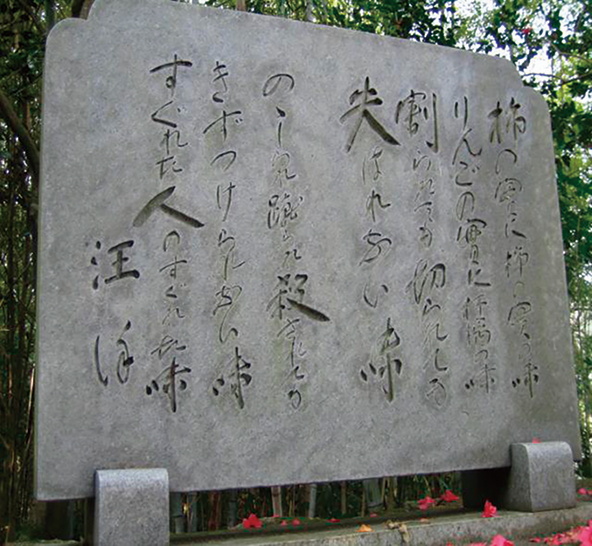 柿の實に柿の實の味
りんごの實に林檎の味
割られても切られても
失はれない味
のゝしられ蹴られ殺されても
きずつけられない味
すぐれた人のすぐれた味
汪洋